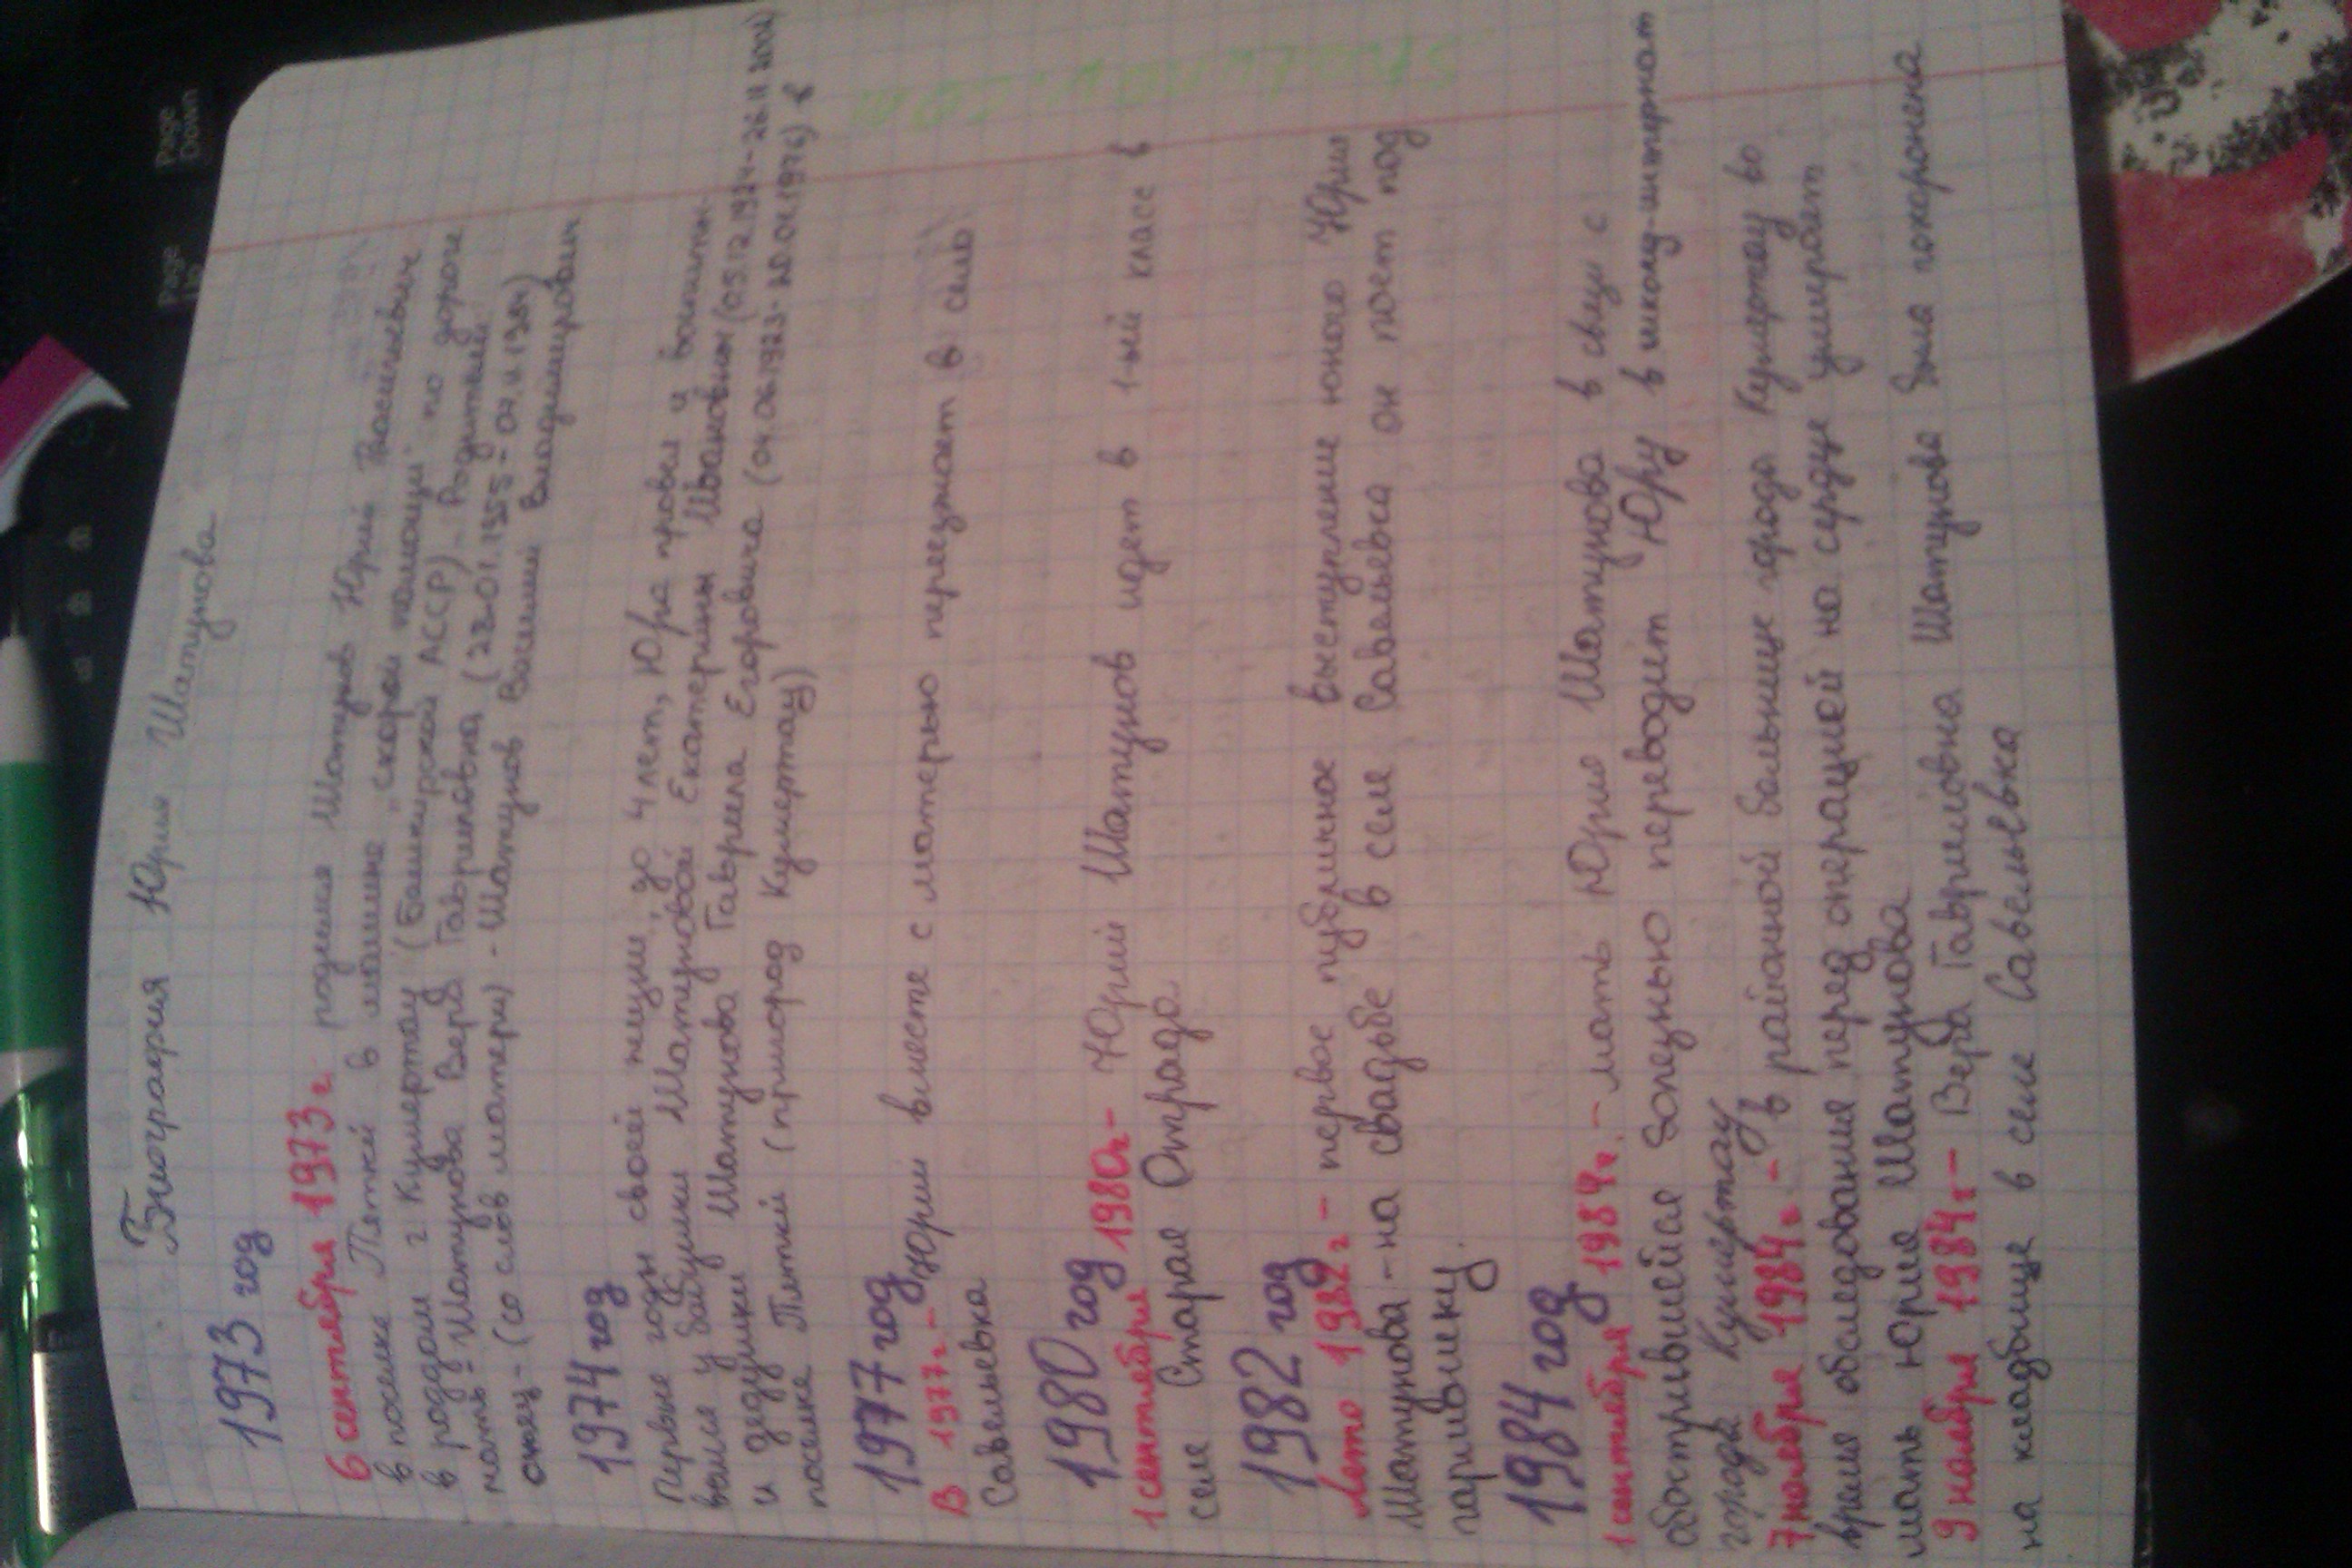 Биография Юрия Шатунова
1973 год
6 сентября 1973 г. родился Шатунов Юрий Васильевич
в поселке Пятки в машине "скорой помощи" по дороге
в роддом г Кумертау (Башкирской АССР). Родители:
мать - Шатунова Вера Гавриловна (22.01.1955 - 07.11.1984)
отец - (со слов матери) - Шатунов Василий Владимирович
1974 год
Первые годы своей жизни, до 4 лет, Юра провел и воспиты-
вался у бабушки Шатуновой Екатерины Ивановны (05.12.1924 - 26.11.2002)
и дедушки Шатунова Гавриела Егоровича (04.06.1923 - 20.01.1976) в
поселке Пятки (пригород Кумертау)
1977 год
В 1977 г. - Юрий вместе с матерью переезжает в село
Савельевка
1980 год
1 сентября 1980г - Юрий Шатунов идет в 1-ый класс в
селе Старая Отрада.
1982 год
Лето 1982 г - первое публичное выступление юного Юрия
Шатунова - на свадьбе в селе Савельевка он поет под
гармошку.
1984 год
1 сентября 1984 г. - мать Юрия Шатунова в связи с
обострившейся болезнью переводит Юру в школу-интернат
города Кумертау
7 ноября 1984 г. - в районой больнице города Кумертау во
время обследования перед операцией на сердце умирает
мать Юрия Шатунова
9 ноября 1984 г - Вера Гавриловна Шатунова была похоронена
на кладбище в селе Савельевка
Page
Down
Page